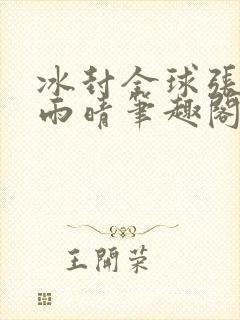 冰封全球張
雨晴筆趣閣
王開榮